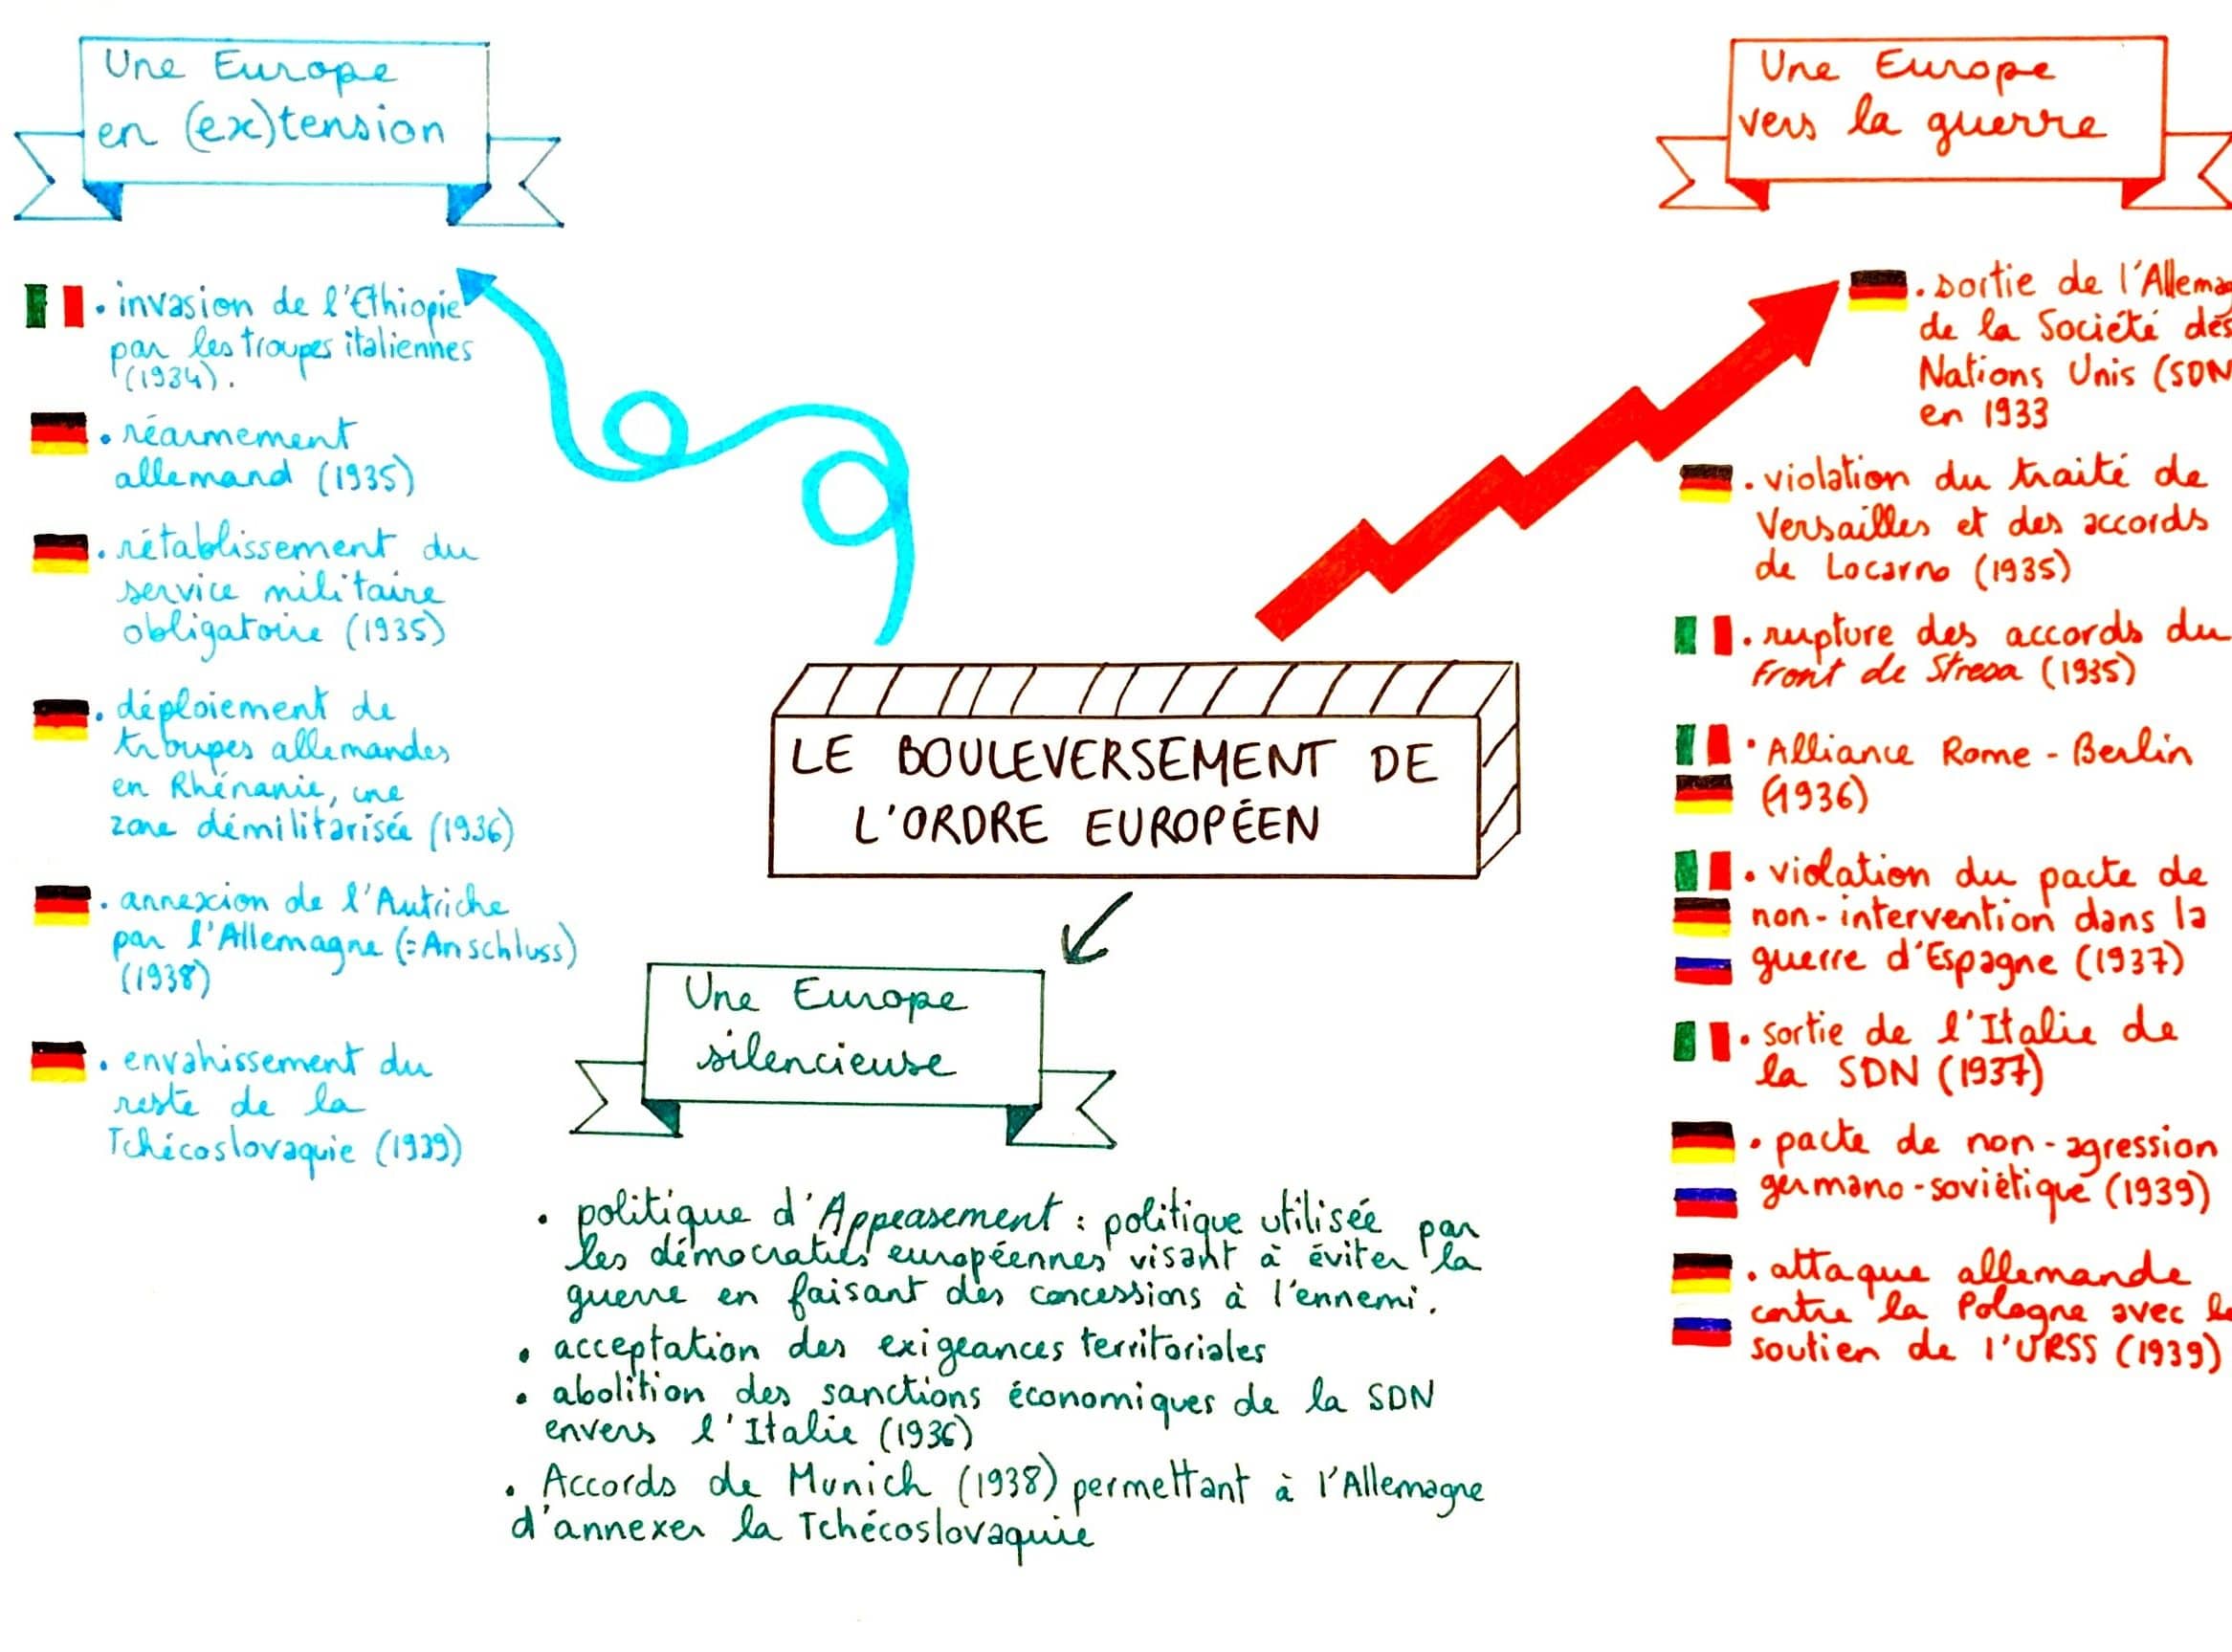 Une Europe
en (ex)tension
• invasion de l'Ethiopie
par les troupes italiennes
(1934).
• réarmement
allemand (1935)
• rétablissement du
service militaire
obligatoire (1935)
• déploiement de
troupes allemandes
en Rhénanie, une
zone démilitarisée (1936)
• annexion de l'Autriche
par l'Allemagne (=Anschluss)
(1938)
• envahissement du
reste de la
Tchécoslovaquie (1939)
LE BOULEVERSEMENT DE
L'ORDRE EUROPÉEN
Une Europe
silencieuse
• politique d'Appeasement : politique utilisée par
les démocraties européennes visant à éviter la
guerre en faisant des concessions à l'ennemi.
• acceptation des exigeances territoriales
• abolition des sanctions économiques de la SDN
envers l'Italie (1936)
• Accords de Munich (1938) permettant à l'Allemagne
d'annexer la Tchécoslovaquie
Une Europe
vers la guerre
• sortie de l'Allema
de la Société des
Nations Unis (SDN
en 1933
• violation du traité de
Versailles et des accords
de Locarno (1935)
• rupture des accords du
Front de Stresa (1935)
• Alliance Rome - Berlin
(1936)
• violation du pacte de
non-intervention dans la
guerre d'Espagne (1937)
• sortie de l'Italie de
la SDN (1937)
• pacte de non-agression
germano-soviétique (1939)
• attaque allemande
contre la Pologne avec le
soutien de l'URSS (1939)